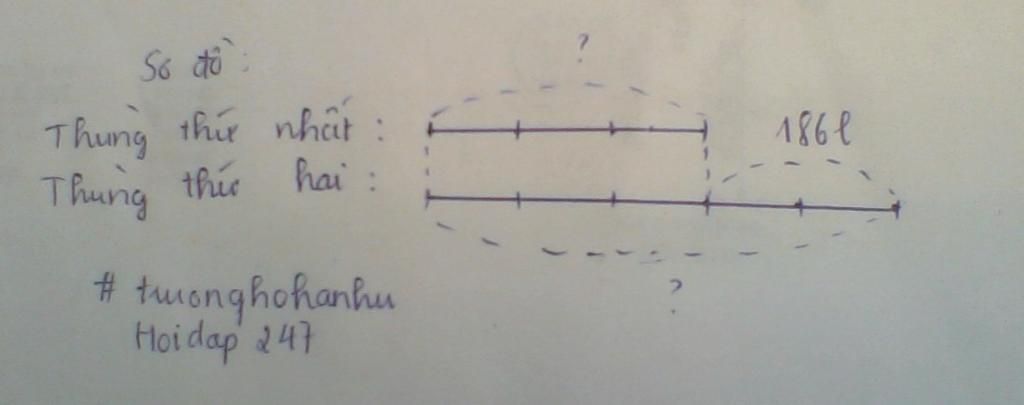 Sơ đồ:
?
Thùng thứ nhất:
186l
Thùng thứ hai:
?
# truonghohanhu
Hoidap 247